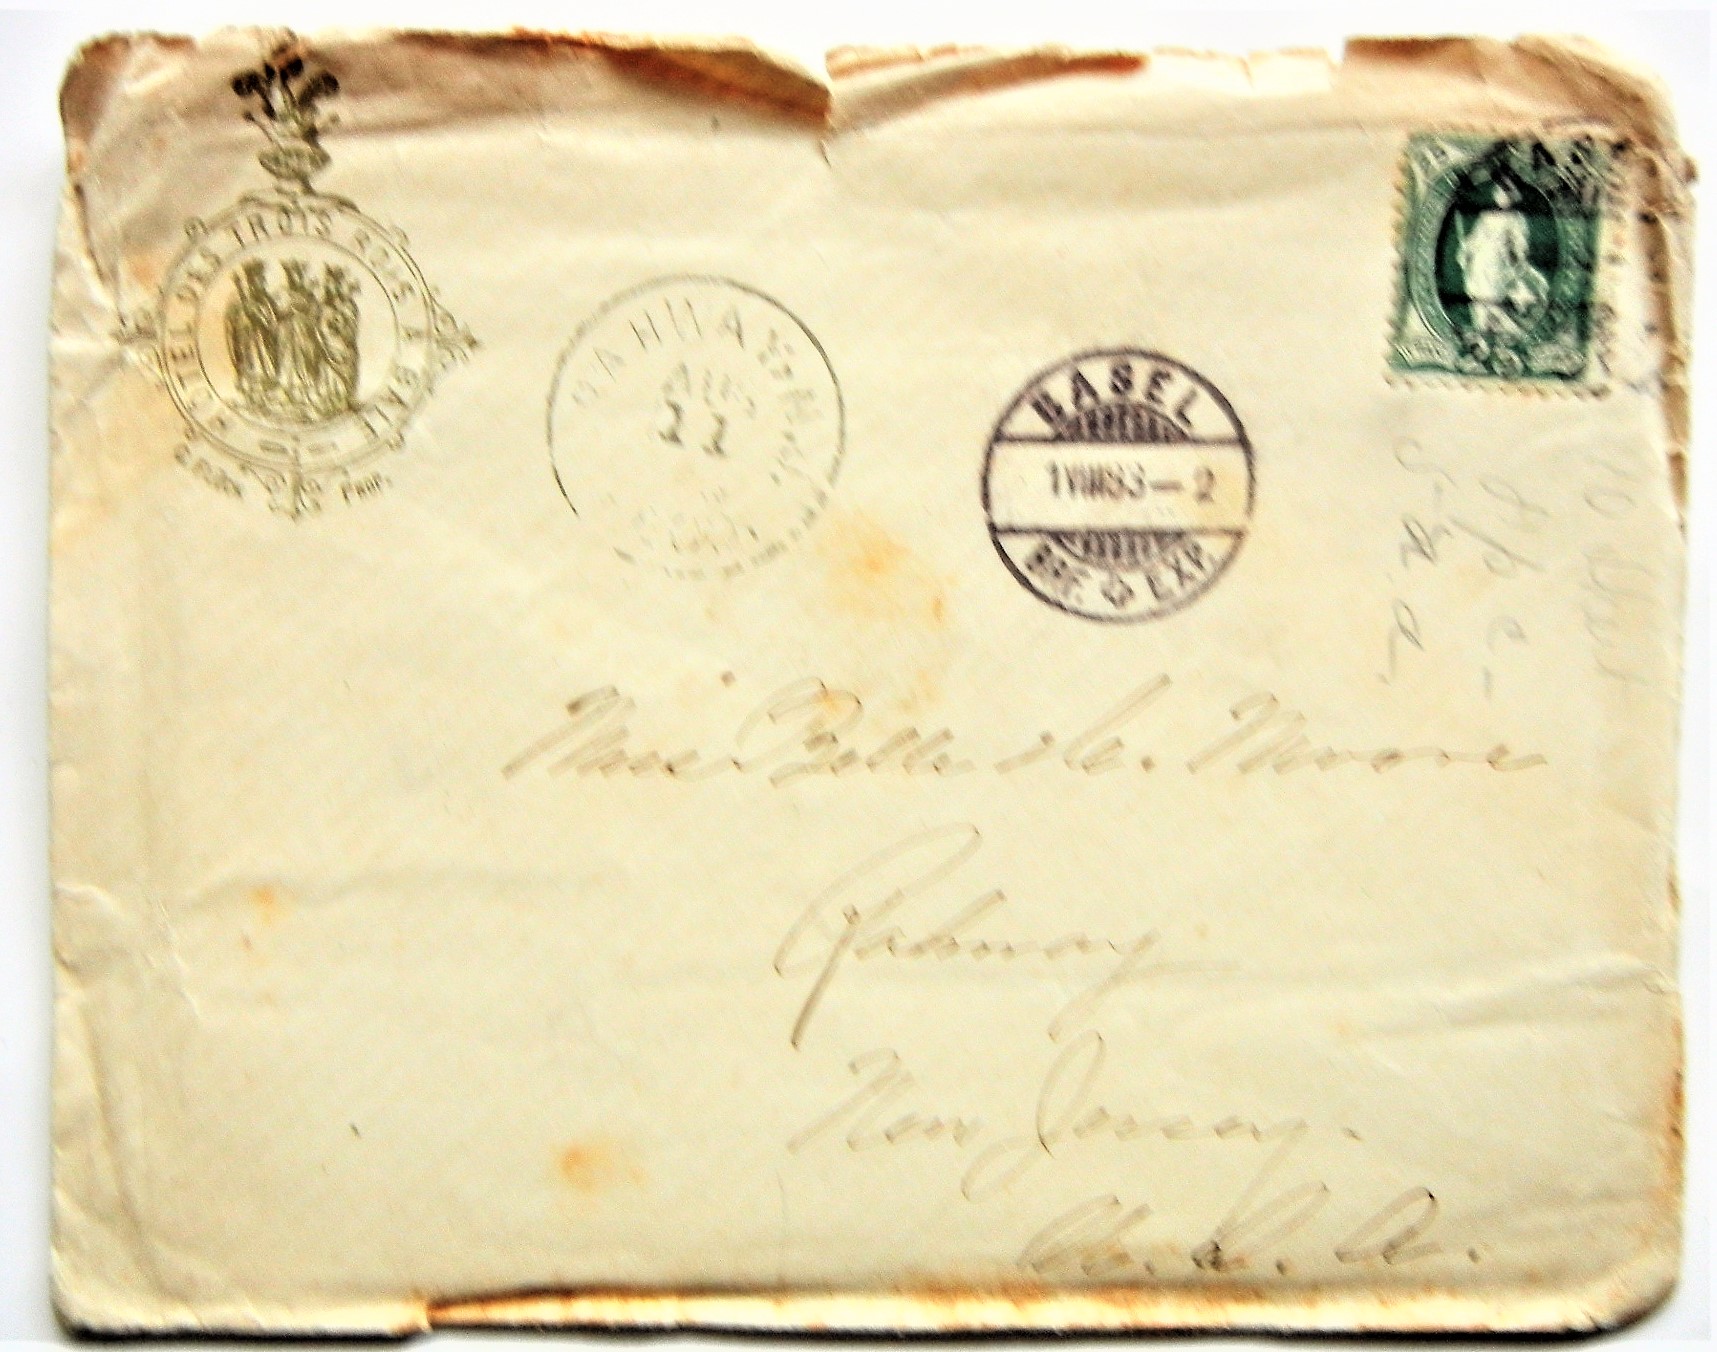 HOTEL DES TROIS ROIS À BÂLE
PROP.
RAHWAY N.J.
AUG
22
BASEL
1 VIII 83 – 2
BRF. EXP.
25
Miss Belle H. Moore
Rahway
New Jersey.
U. S. A.